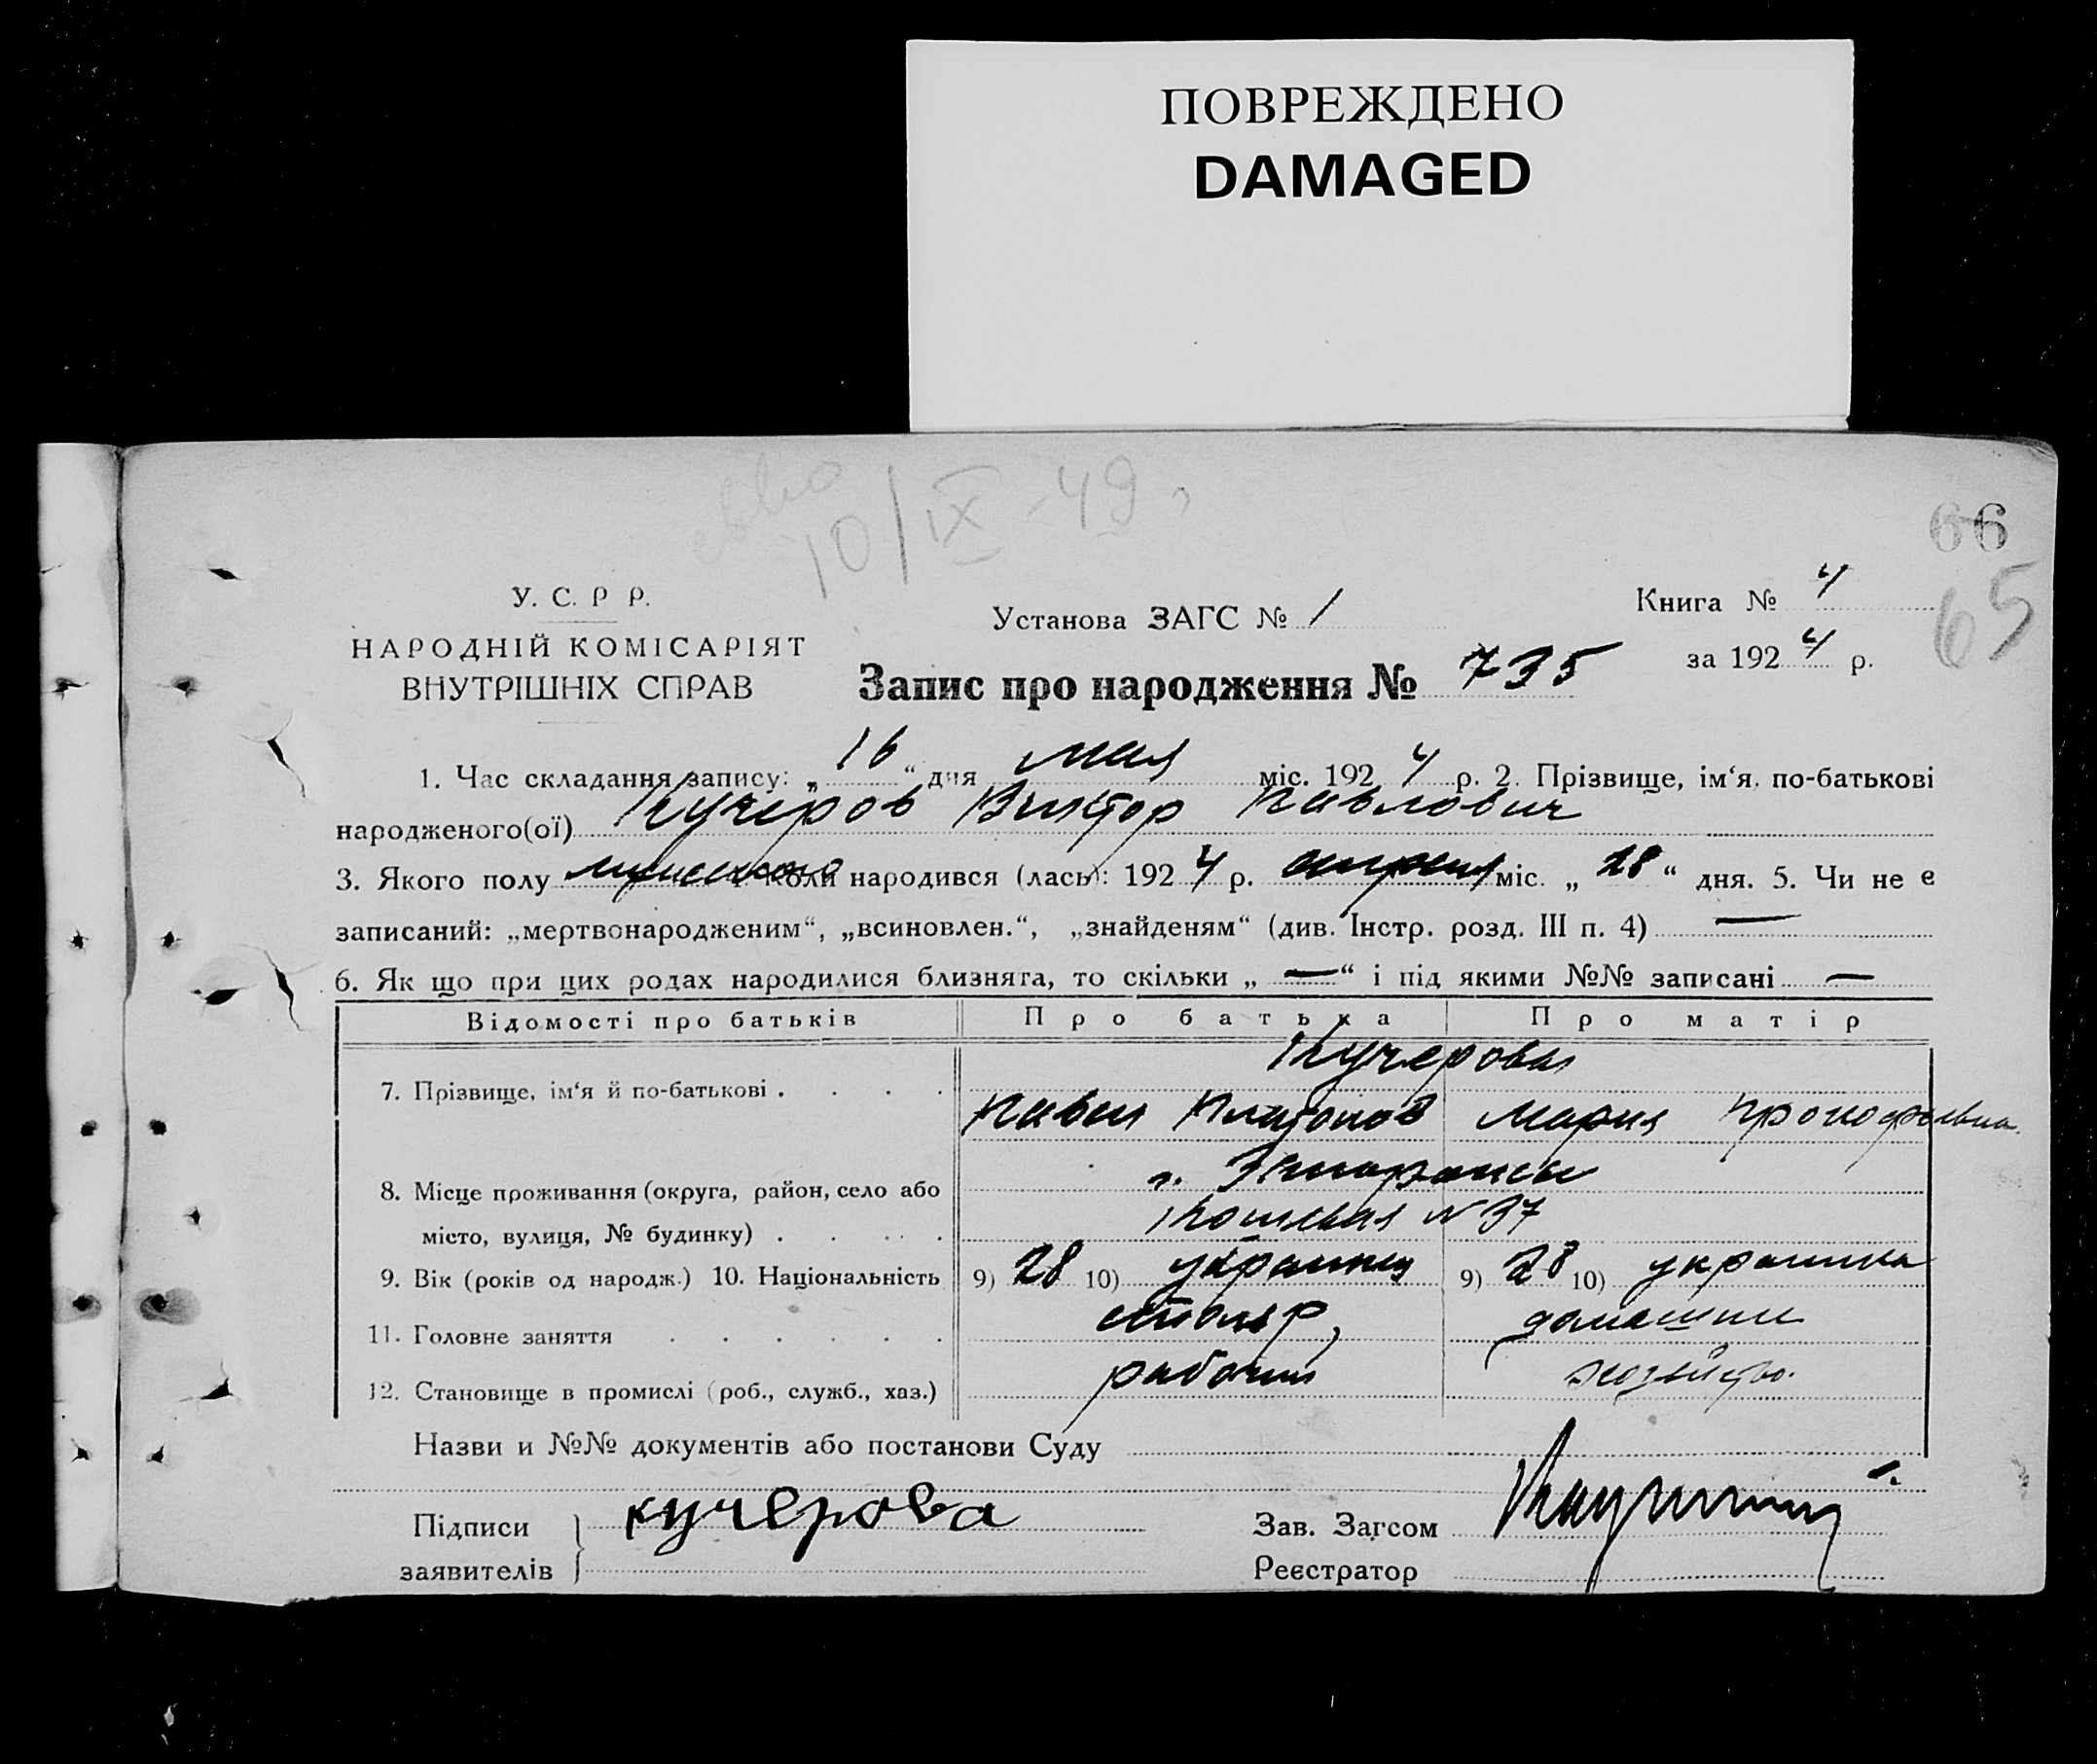 ПОВРЕЖДЕНО
DAMAGED
10/IX-49 г
66
65
У. С. Р Р.
НАРОДНІЙ КОМІСАРІЯТ
ВНУТРІШНІХ СПРАВ
Установа ЗАГС № 1
Книга № 4
за 1924 р.
Запис про народження № 735
1. Час складання запису: „16“ дня мая міс. 1924 р. 2. Прізвище, ім‘я, по-батькові
народженого(ої) Кучеров Виктор Павлович
3. Якого полу мужского коли народився (лась): 1924 р. апреля міс. „28“ дня. 5. Чи не є
записаний: „мертвонародженим“, „всиновлен.“, „знайденям“ (див. Інстр. розд. III п. 4) —
6. Як що при цих родах народилися близнята, то скільки „—“ і під якими №№ записані —
Відомості про батьків Про батька Про матір
Кучеровы
7. Прізвище, ім‘я й по-батькові . . . .
Павел Платонов Мария Прокофьевна
8. Місце проживання (округа, район, село або г.
місто, вулиця, № будинку) . . . . Кошевая № 37
9. Вік (років од народж.) 10. Національність 9) 28 10) украинец 9) 28 10) украинка
11. Головне заняття . . . . . . столяр, домашнее
12. Становище в промислі (роб., служб., хаз.) рабочий хозяйство.
Назви и №№ документів або постанови Суду
Підписи Кучерова Зав. Загсом
заявителів Реєстратор